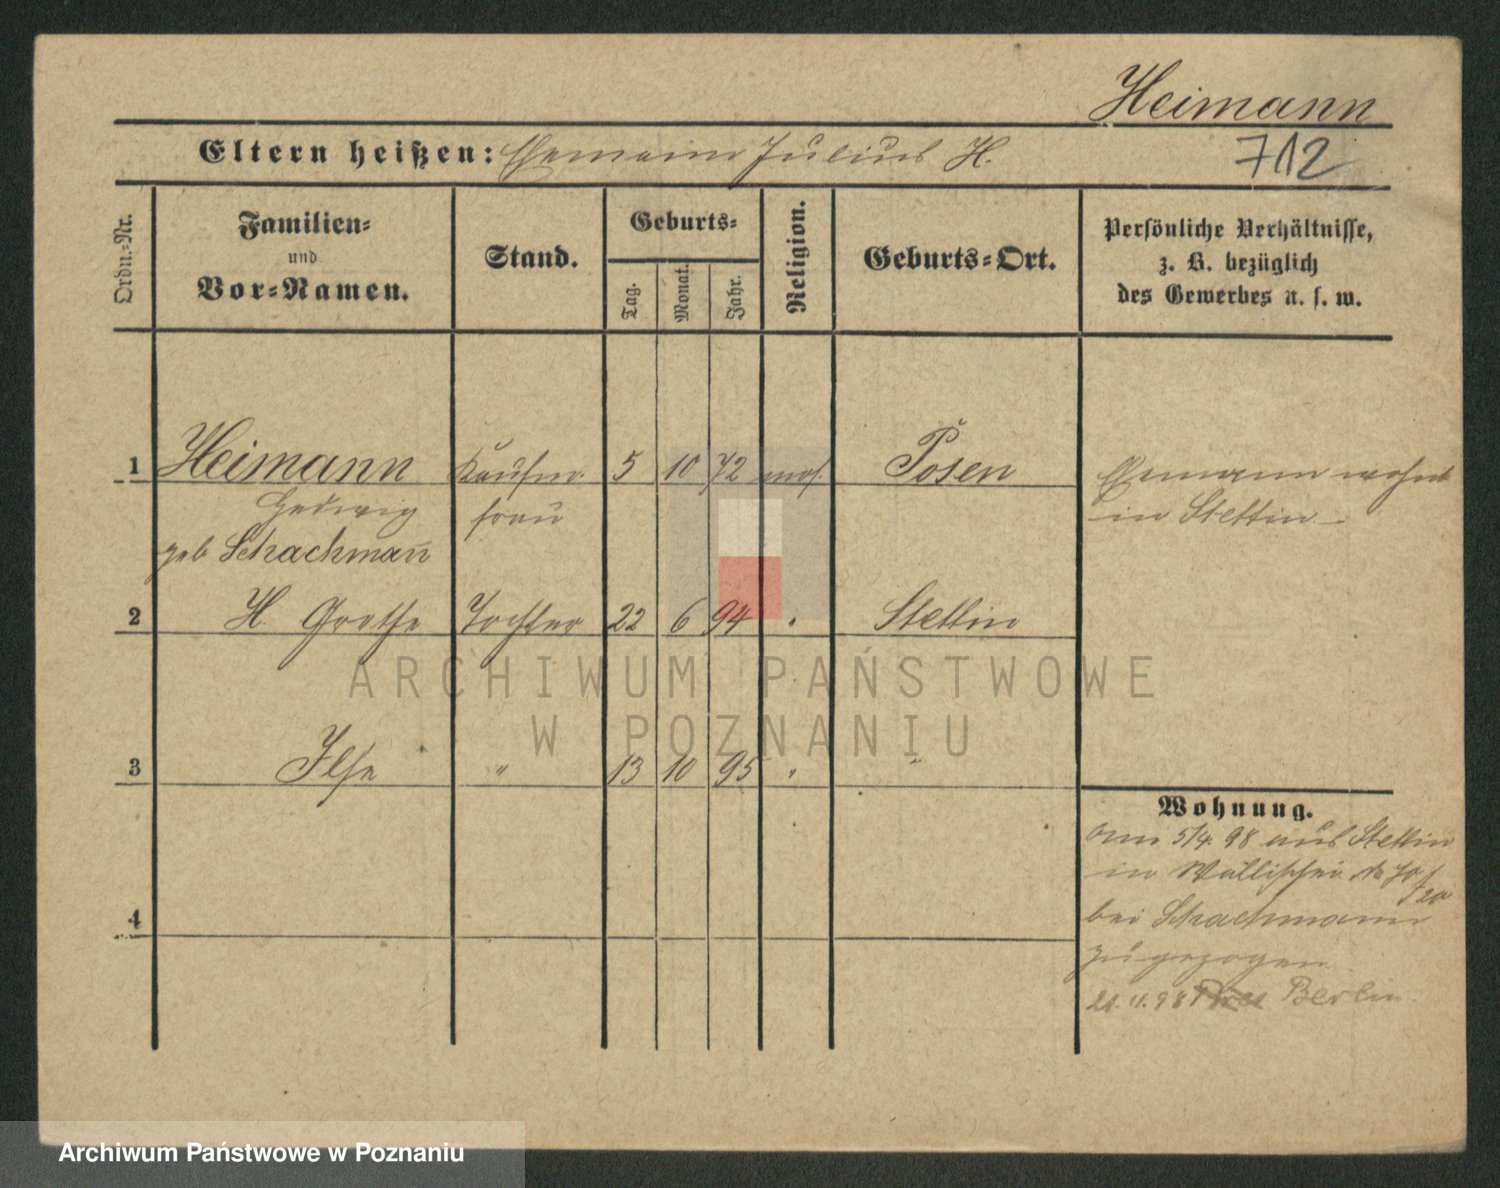 Heimann
Eltern heißen: Ehemann Julius H.
712
Ordn.-Nr.
Familien-
und
Vor-Namen.
Stand.
Geburts-
Tag.
Monat.
Jahr.
Religion.
Geburts-Ort.
Persönliche Verhältnisse,
z. B. bezüglich
des Gewerbes u. s. w.
1 Heimann Kaufm. 5 10 72 mos. Posen Ehemann wohnt
Hedwig frau in Stettin
geb Schachmañ
2 H. Grethe Tochter 22 6 94 " Stettin
3 Ilse " 13 10 95 " "
4
Wohnung.
Am 5/4. 98 aus Stettin
in Wallischei No 70/
20
bei Schachmann
zugezogen
21. 11. 98 Berlin.
ARCHIWUM PAŃSTWOWE
W POZNANIU
Archiwum Państwowe w Poznaniu